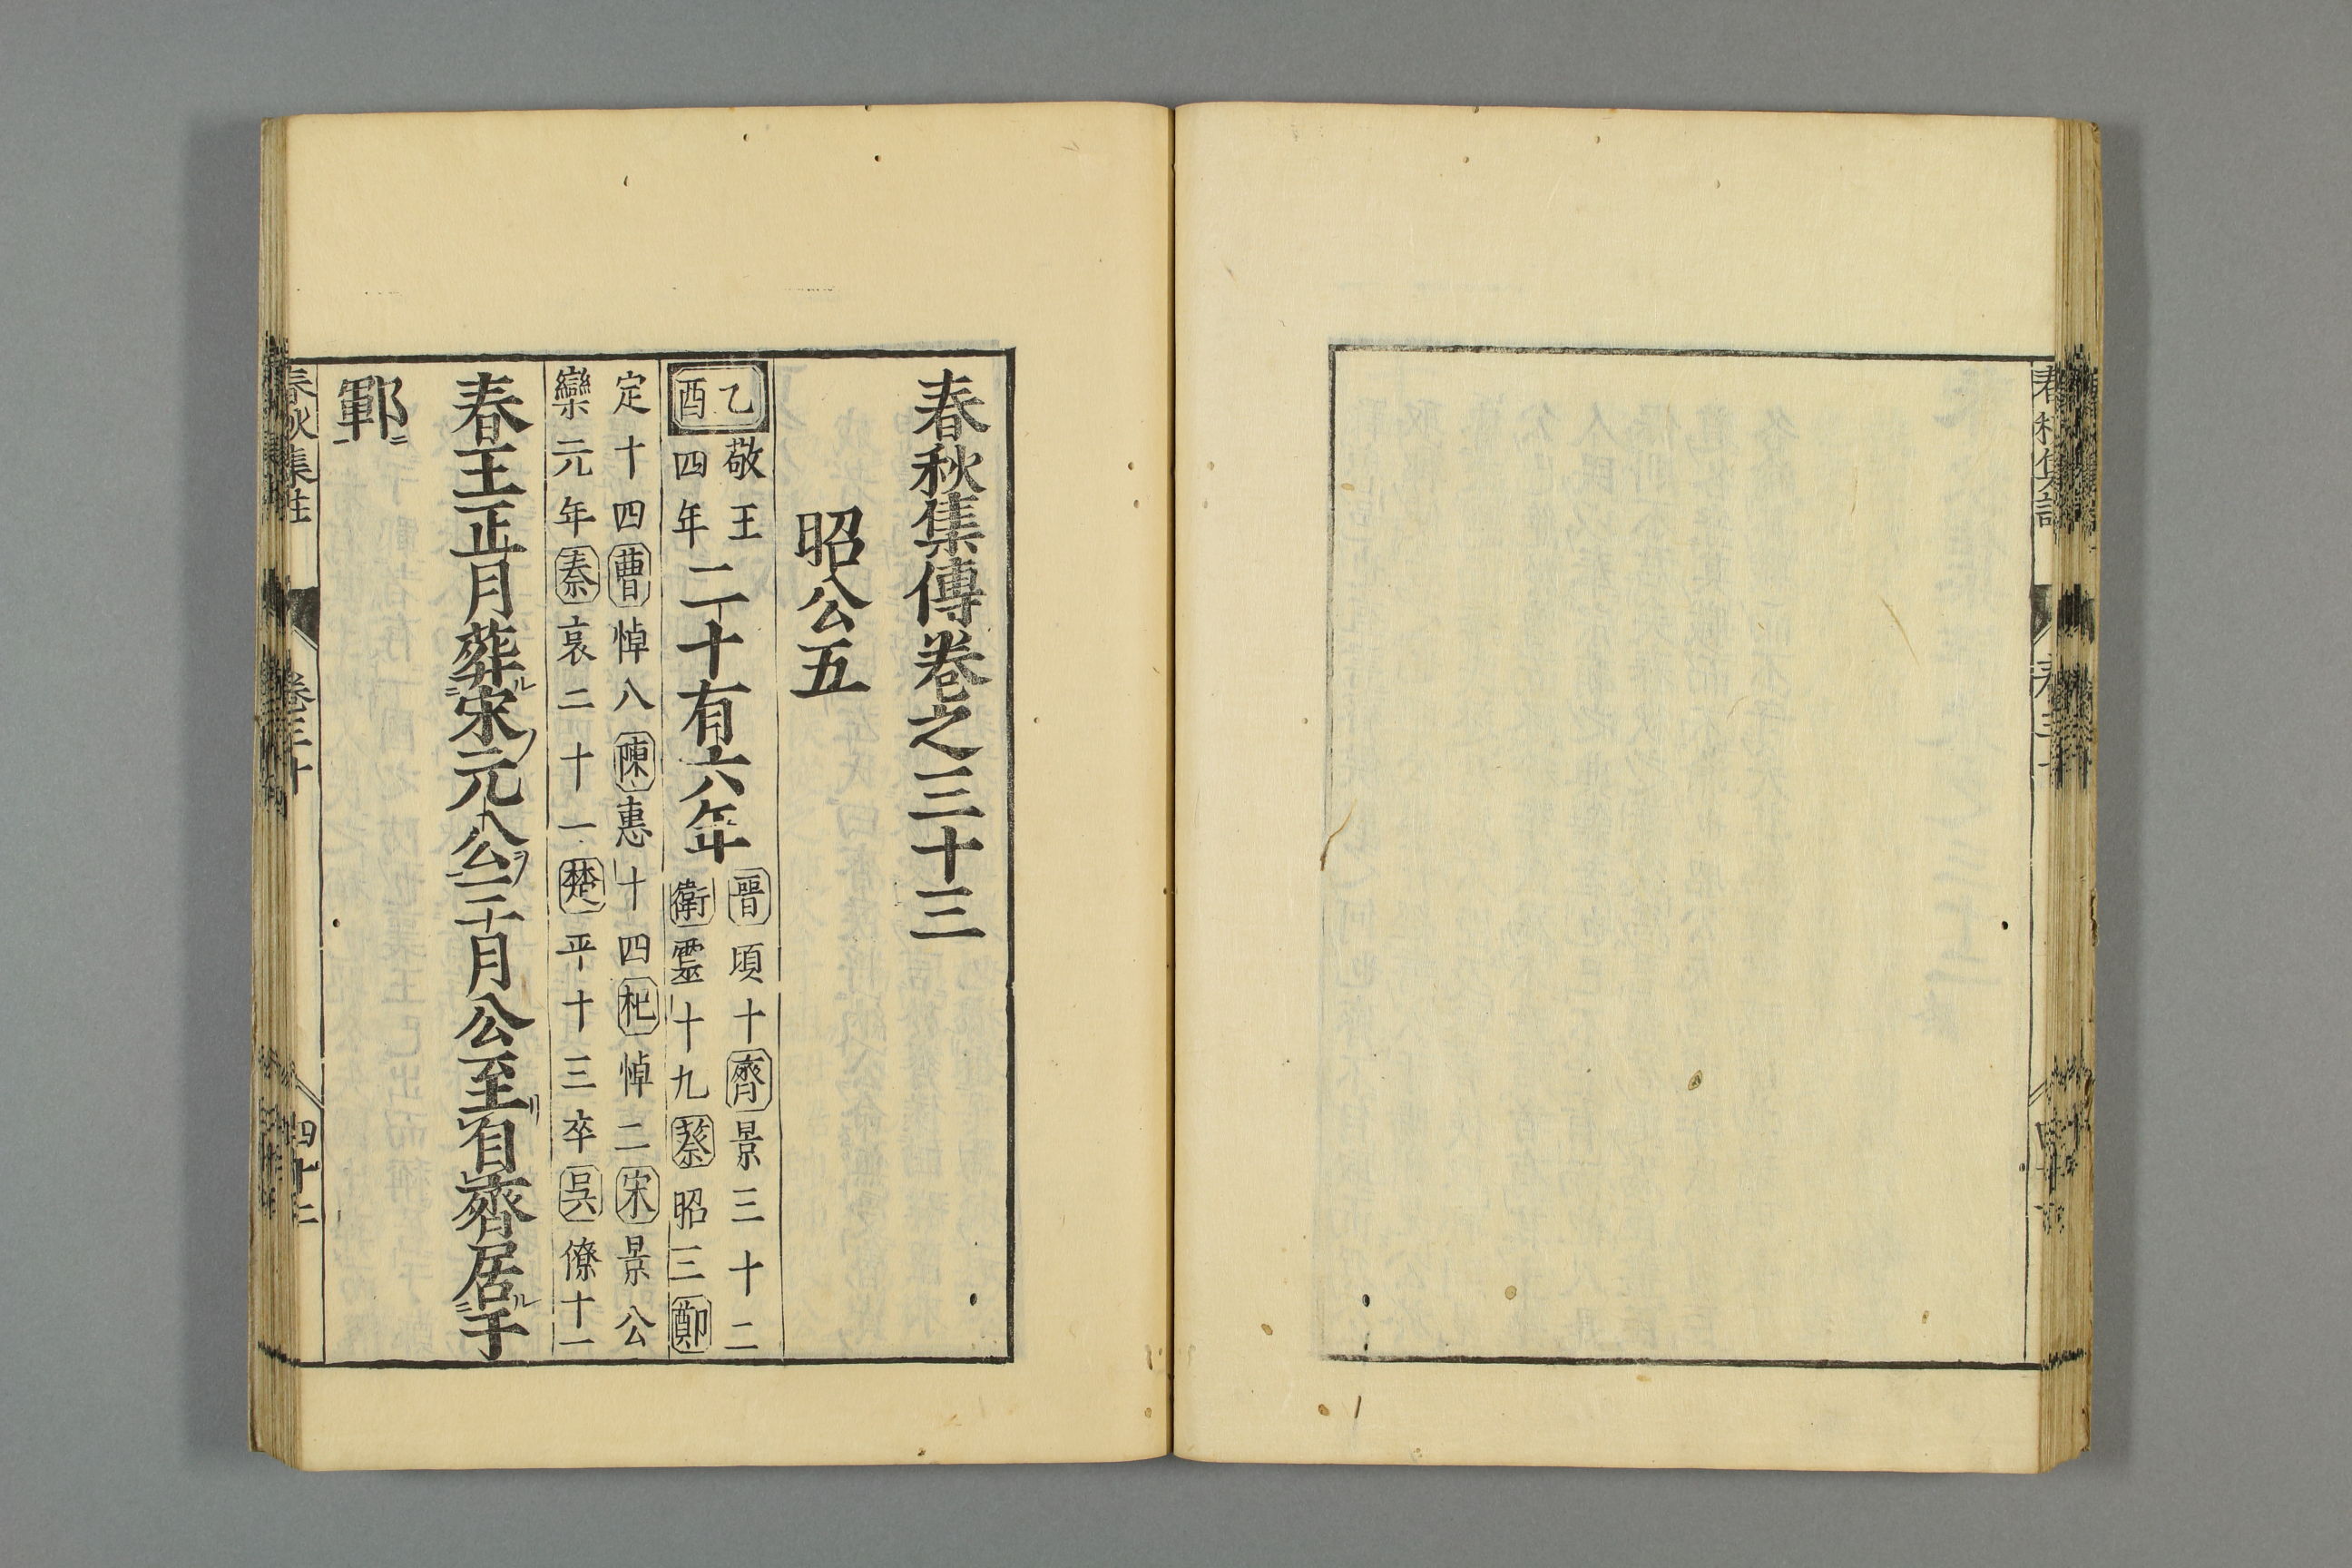 春秋集傳卷之三十三
昭公五
乙酉
敬王
四年
二十有六年
晉頃十齊景三十二
衛靈十九蔡昭三鄭
定十四曹悼八陳惠十四杞悼二宋景公
欒元年秦哀二十一楚平十三卒吳僚十一
春王正月葬宋元公三月公至自齊居于
鄆
春秋集註
卷三十
四十二